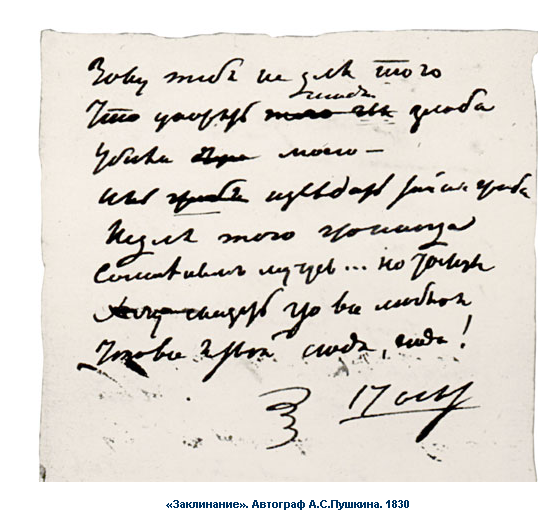 Зову тебя не для того
людей
Чтоб укорять злоба
Убила моего —
Иль изведать тайны гроба
Не для того что иногда
Сомненьем мучусь... но тоскуя
Хочу сказать что все люблю я
Что все я твой сюда, сюда!
17 окт
«Заклинание». Автограф А.С.Пушкина. 1830